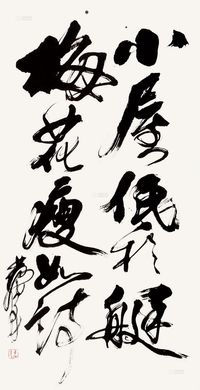 小屋低於艇
梅花瘦如詩